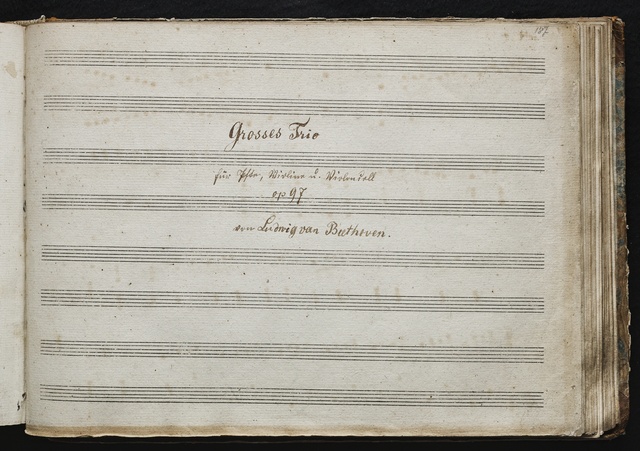 107
Grosses Trio
für Pfte, Violine u. Violoncell
op 97
von Ludwig van Beethoven.